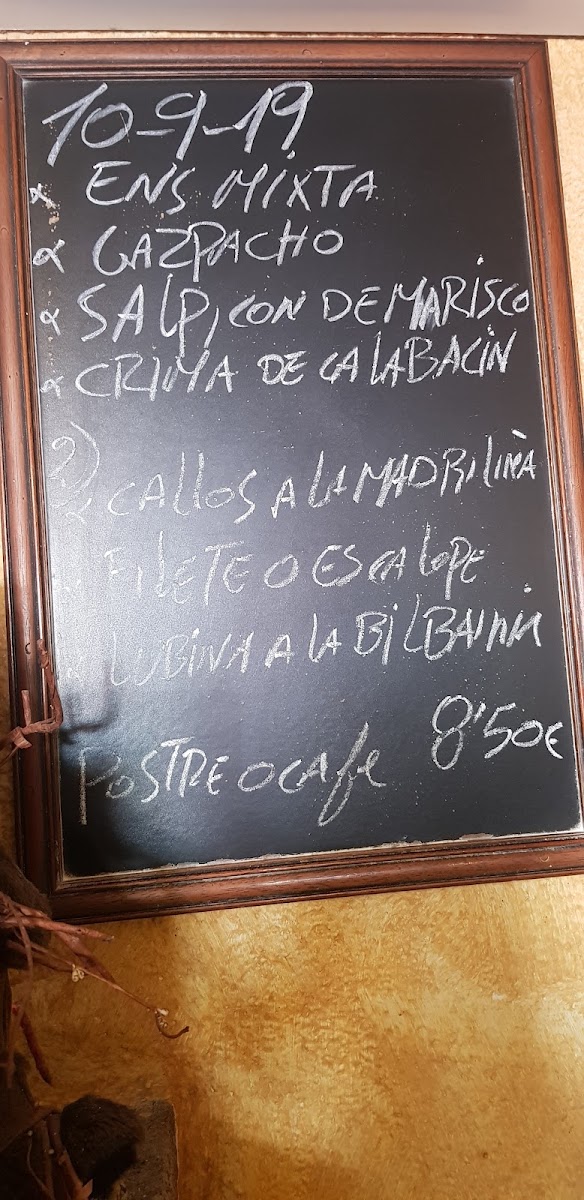 10-9-19
ENS MIXTA
GAZPACHO
SALPICON DE MARISCO
CRIMA DE CALABACIN
2)
CALLOS A LA MADRILIÑA
FILETE O ESCALOPE
LUBINA A LA BILBAINA
POSTRE O CAFE 8'50€